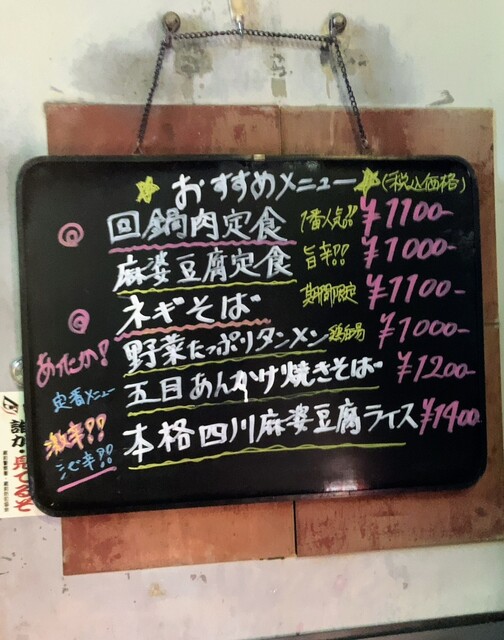 おすすめメニュー (税込価格)
回鍋肉定食 1番人気!! ¥1100-
麻婆豆腐定食 旨辛!! ¥1000-
ネギそば 期間限定 ¥1100-
あったか! 野菜たっぷりタンメン ¥1000-
定番メニュー 五目あんかけ焼きそば ¥1200-
激辛!! 本格四川麻婆豆腐ライス ¥1400-
シビ辛!!
誰か、見てるぞ